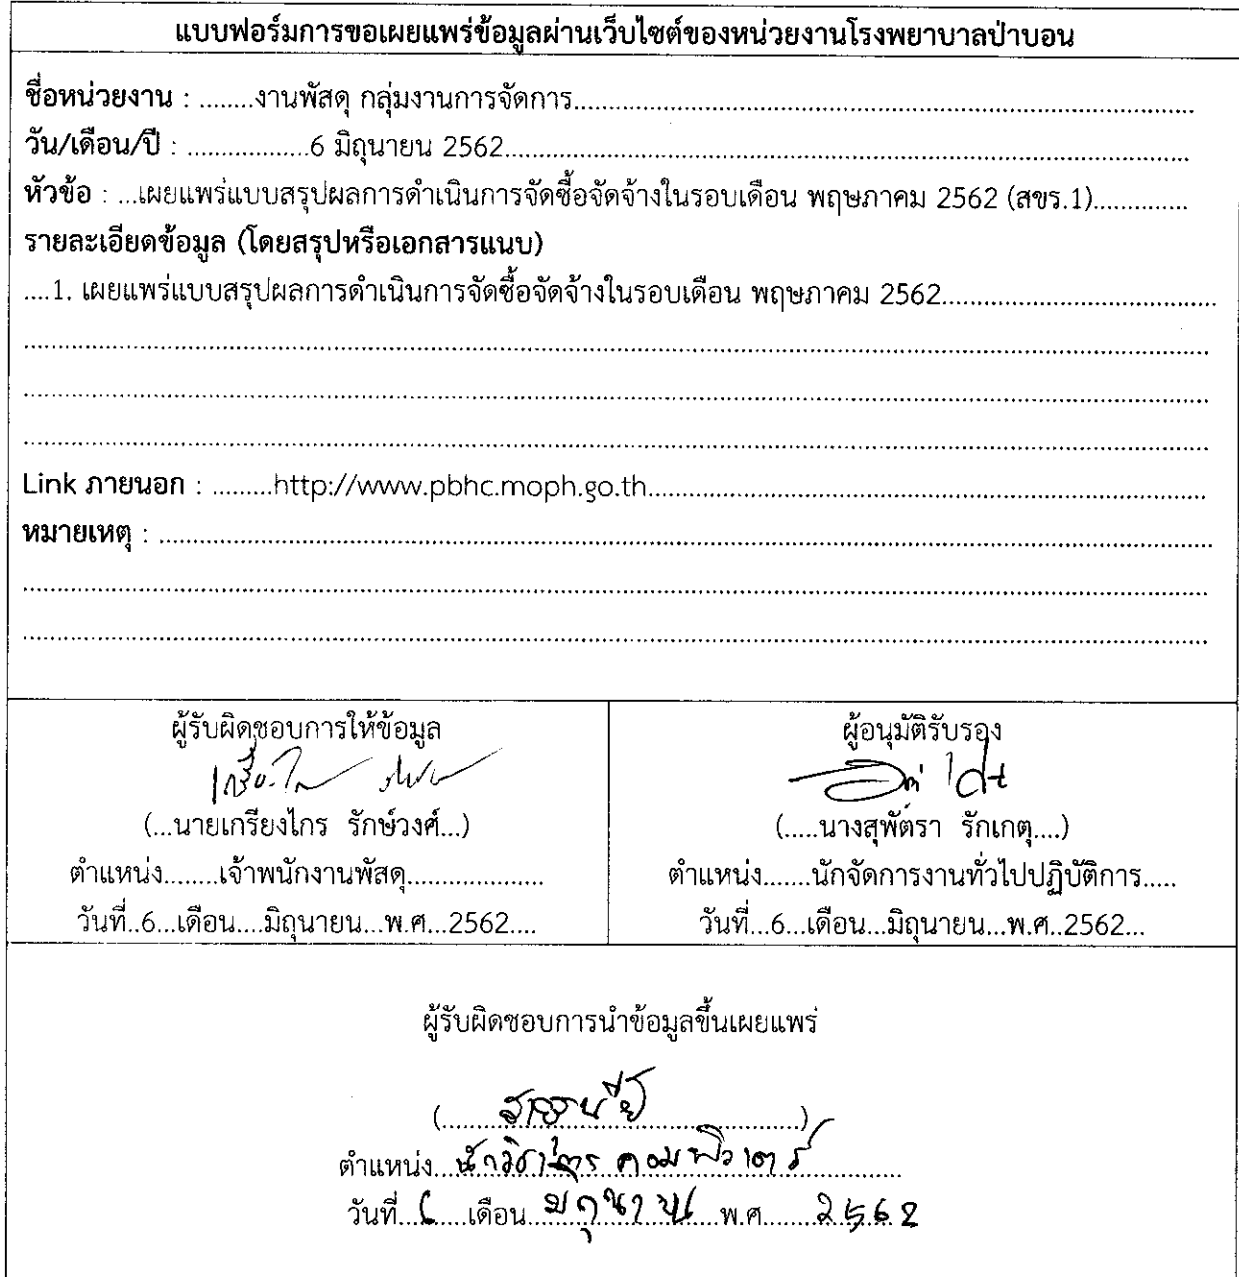 แบบฟอร์มการขอเผยแพร่ข้อมูลผ่านเว็บไซต์ของหน่วยงานโรงพยาบาลป่าบอน
ชื่อหน่วยงาน : ........งานพัสดุ กลุ่มงานการจัดการ........
วัน/เดือน/ปี : .................6 มิถุนายน 2562........
หัวข้อ : ...เผยแพร่แบบสรุปผลการดำเนินการจัดซื้อจัดจ้างในรอบเดือน พฤษภาคม 2562 (สขร.1)..............
รายละเอียดข้อมูล (โดยสรุปหรือเอกสารแนบ)
....1. เผยแพร่แบบสรุปผลการดำเนินการจัดซื้อจัดจ้างในรอบเดือน พฤษภาคม 2562........
Link ภายนอก : .........http://www.pbhc.moph.go.th........
หมายเหตุ : ........
ผู้รับผิดชอบการให้ข้อมูล
(...นายเกรียงไกร รักษ์วงศ์...)
ตำแหน่ง........เจ้าพนักงานพัสดุ...................
วันที่..6...เดือน....มิถุนายน...พ.ศ...2562....
ผู้อนุมัติรับรอง
(.....นางสุพัตรา รักเกตุ....)
ตำแหน่ง.......นักจัดการงานทั่วไปปฏิบัติการ.....
วันที่...6...เดือน...มิถุนายน...พ.ศ..2562...
ผู้รับผิดชอบการนำข้อมูลขึ้นเผยแพร่
ตำแหน่ง...นักวิชาการคอมพิวเตอร์........
วันที่...6.....เดือน...มิถุนายน.....พ.ศ........2562